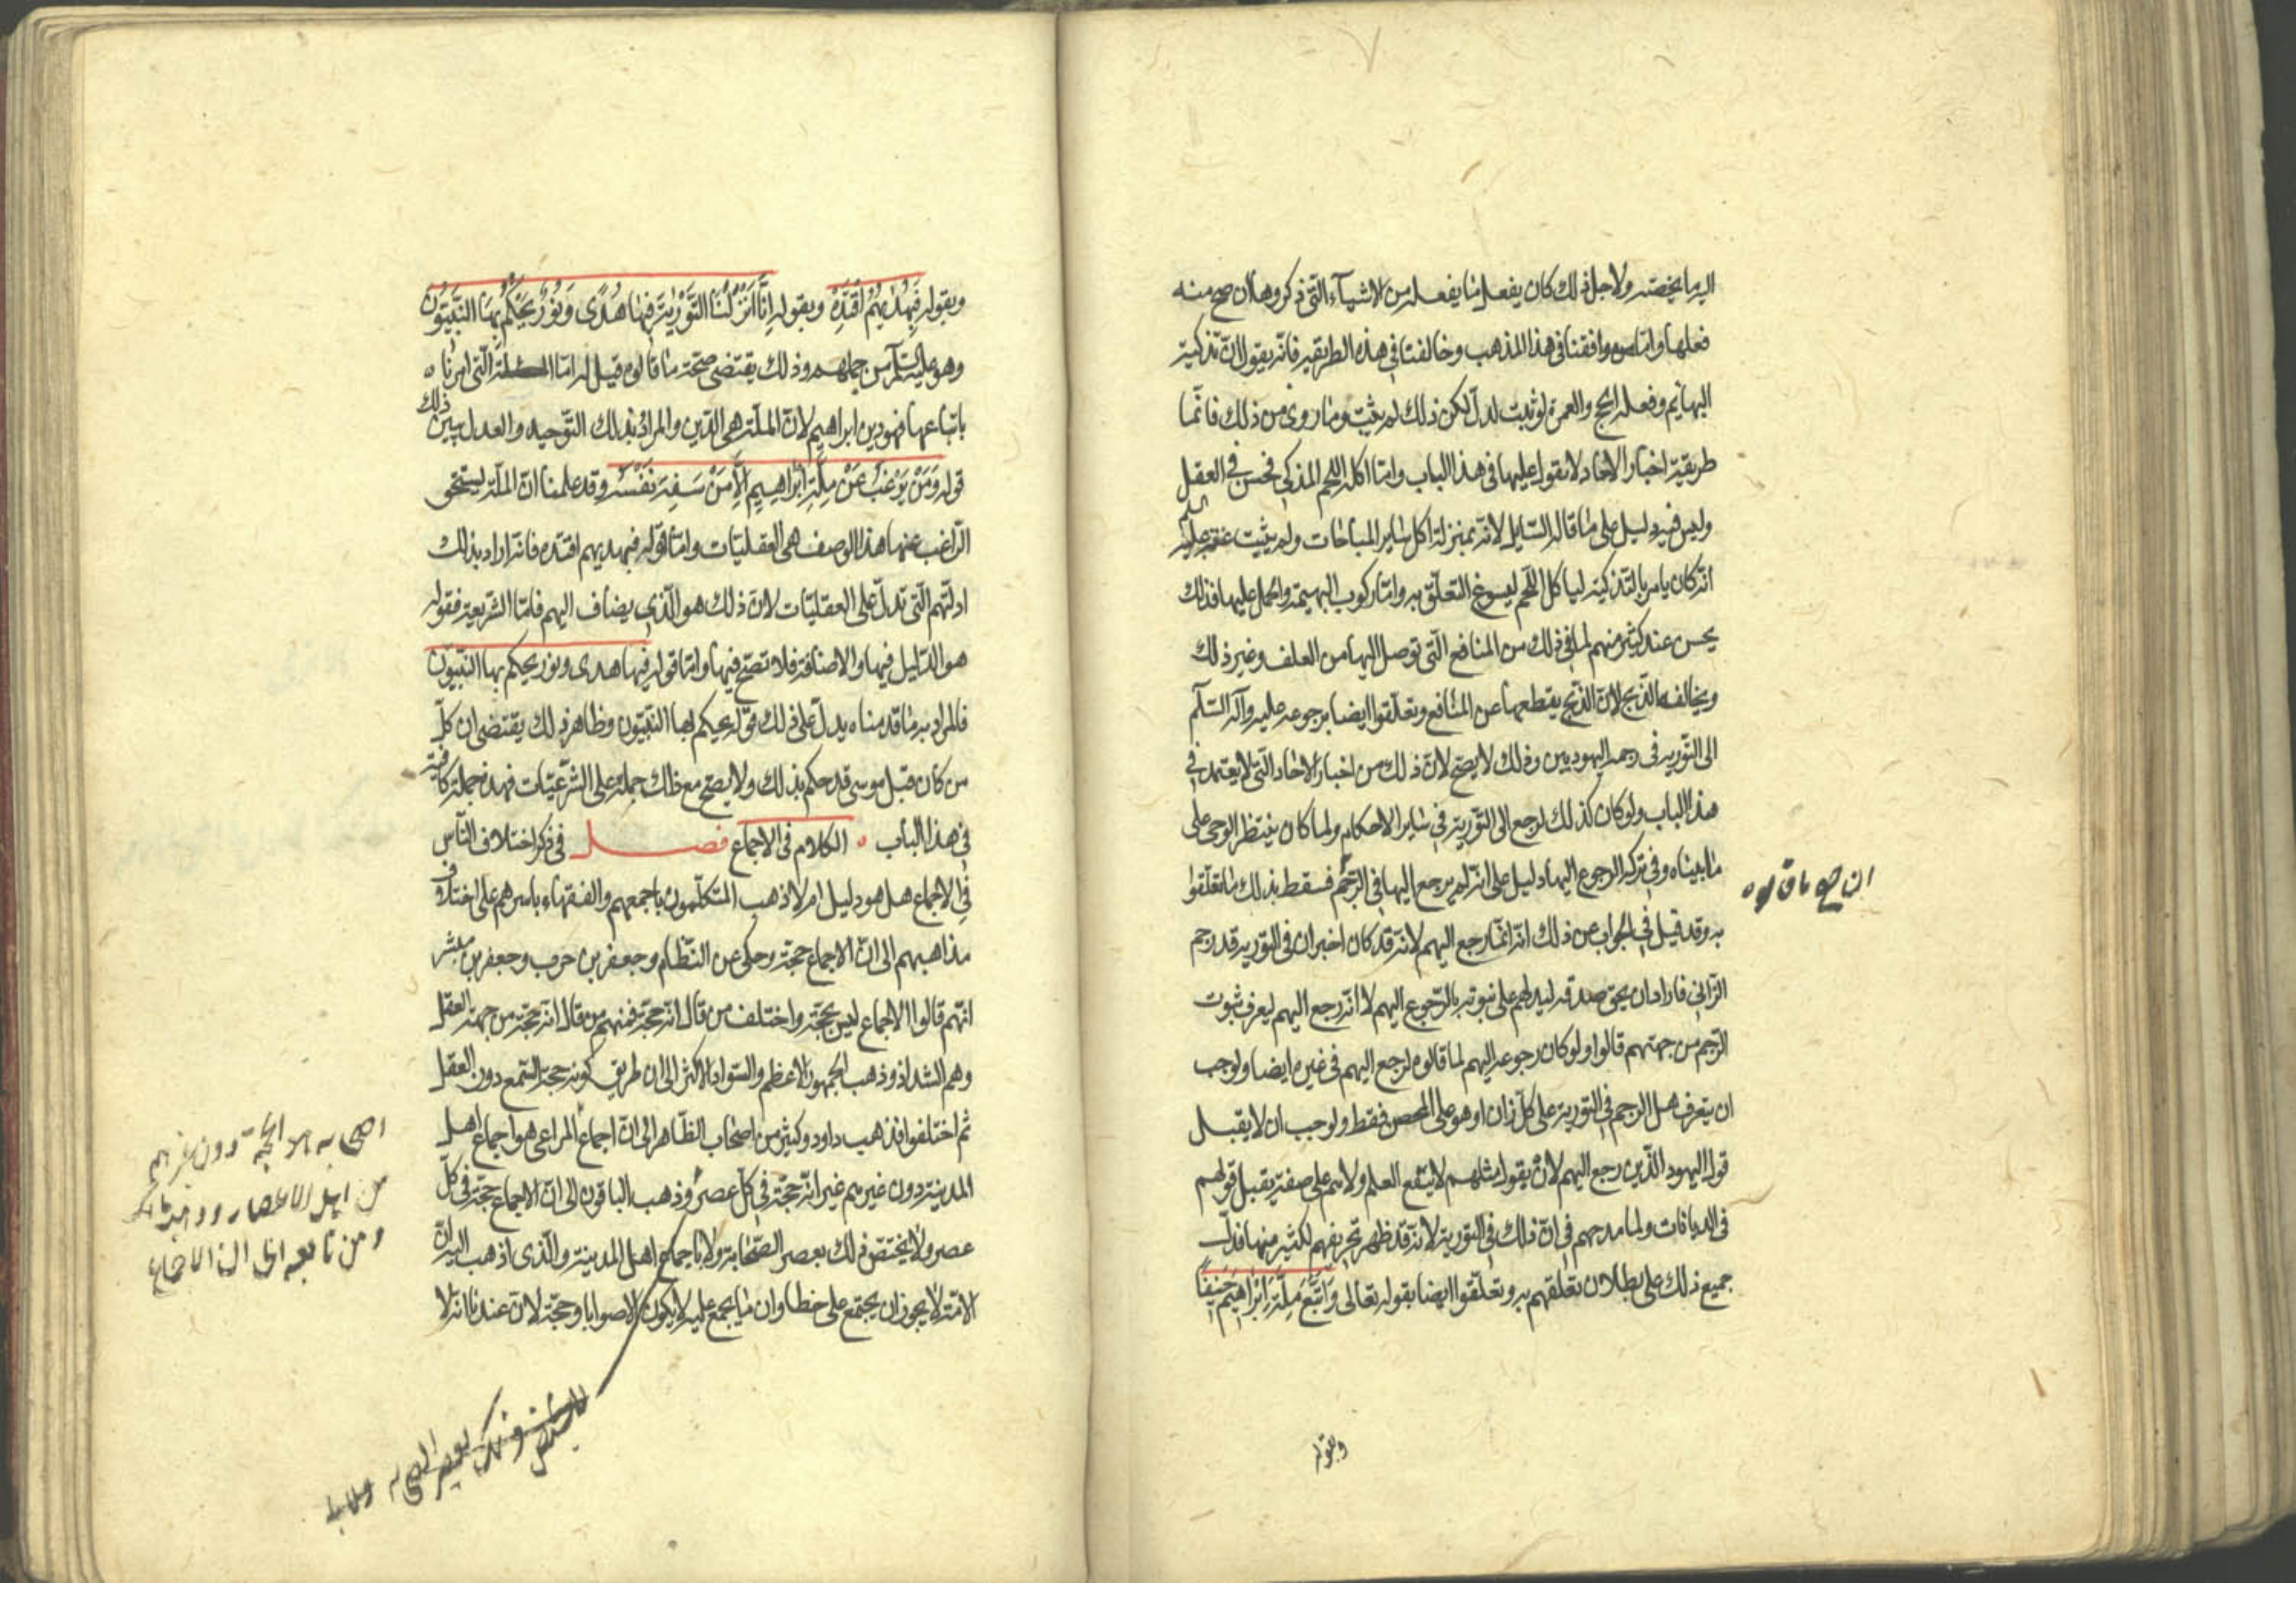 اليه ما يخصّه ولاجل ذلك كان يفعل ما يفعله من الاشياء التّى ذكروها ان صح منه
فعلها وامّا من وافقنا فى هذا المذهب وخالفنا فى هذه الطريقة فانّه يقول لانّ تذكية
البهايم وفعله الحج والعمرة لو ثبت لدلّ لكن ذلك لم يثبت وما روى من ذلك فانّما
طريقته اخبار الاحاد لا يقول عليها فى هذا الباب وامّا اكله اللحم المذكى فحسن فى العقل
وليس فيه دليل على ما قاله السّايل لانّه بمنزلة اكل ساير المباحات ولم يثبت عنه عليه السلم
انّه كان يامر بالتذكية لياكل اللّحم ليسوغ التعلّق به وامّا ركوب البهيمة والحمل عليها فذلك
يحسن عند كثير منهم لما فى ذلك من المنافع الّتى توصل اليها من العلف وغير ذلك
ويخالفه الذّبح لانّ الذّبح يقطعها عن المنافع وتعلّقوا ايضا برجوعه عليه وآله السّلم
الى التّورية فى رجم اليهوديين وذلك لا يصح لانّ ذلك من اخبار الاحاد التّى لا يعتمد فى
هذا الباب ولو كان كذلك لرجع الى التّورية فى ساير الاحكام ولما كان ينتظر الوحى على
ما بيناه وفى تركه الرجوع اليها دليل على انّه لم يرجع اليها فى الرّجم فسقط بذلك ما تعلّقوا
به وقد قيل فى الجواب عن ذلك انّه انّما رجع اليهم لانّه قد كان اخبر ان فى التورية قد رجم
الزّانى فاراد ان يحق صدقه ليدلهم على نبوته بالرّجوع اليهم لا انّه رجع اليهم ليعرف ثبوت
الرّجم من جهتهم قالوا ولو كان رجوعه اليهم لما قالوه لرجع اليهم فى غيره ايضا ولوجب
ان يتعرف هل الرجم فى التورية على كلّ زان او هو على المحصن فقط ولوجب ان لا يقبل
قول اليهود الذّين رجع اليهم لانّ بقول مثلهم لا يقع العلم ولا هم على صفة يقبل قولهم
فى الديانات ولما صدرهم فى انّ ذلك فى التورية لانّه قد ظهر تحريفهم لكثير منها فدلّ
جميع ذلك على بطلان تعلّقهم به وتعلّقوا ايضا بقوله تعالى وَاتَّبَعَ مِلَّةَ اِبْرَاهِيمَ حَنِيفًا
وبقوله
ان صح ما قالوه
وبقوله فَبِهُدٰيهُمُ اقْتَدِهْ وبقوله اِنَّا اَنْزَلْنَا التَّوْرٰيةَ فِيهَا هُدًى وَنُورٌ يَحْكُمُ بِهَا النَّبِيُّونَ
وهو عليه السّلم من جملتهم وذلك يقتضى صحّة ما قالوه قيل له امّا الملّة الّتى امرنا
باتباعها فهو دين ابراهيم لانّ الملّة هى الدّين والمراد بذلك التّوحيد والعدل يبين ذلك
قوله وَمَنْ يَرْغَبُ عَنْ مِلَّةِ اِبْرَاهِيمَ اِلَّا مَنْ سَفِهَ نَفْسَهُ وقد علمنا انّ الملّة ليستحق
الرّاغب عنها هذا الوصف هى العقليّات وامّا قوله فبهديهم اقتده فانّه اراد بذلك
ادلّتهم الّتى تدلّ على العقليّات لانّ ذلك هو الّذى يضاف اليهم فامّا الشريعة فقوله
هو الدّليل فيها والاضافة فلا تصحّ فيها وامّا قوله فيها هدى ونور يحكم بها النّبيّون
فالمراد به ما قدمناه يدلّ على ذلك قوله يحكم بها النّبيّون وظاهر ذلك يقتضى ان كلّ
من كان قبل موسى قد حكم بذلك ولا يصح مع ذلك حمله على الشّرعيّات فهذه جملة كافية
فى هذا الباب ٥ الكلام فى الاجماع فصل فى ذكر اختلاف النّاس
فى الاجماع هل هو دليل ام لا ذهب المتكلّمون باجمعهم والفقهاء باسرهم على اختلاف
مذاهبهم الى انّ الاجماع حجّة وحكى عن النظّام وجعفر بن حرب وجعفر بن مبشّر
انّهم قالوا الاجماع ليس بحجّة واختلف من قال انّه حجّة فمنهم من قال انّه حجّة من جهة العقل
وهم الشذاذ وذهب الجمهور الاعظم والسّواد الاكثر الى ان طريق كونه حجّة السّمع دون العقل
ثم اختلفوا فذهب داود وكثير من اصحاب الظّاهر الى انّ اجماع المراعى هو اجماع اهل
المدينة دون غيرهم غير انّه حجّة فى كلّ عصر وذهب الباقون الى انّ الاجماع حجّة فى كلّ
عصر ولا يختصّ ذلك بعصر الصّحابة ولا باجماع اهل المدينة والّذى اذهب اليه انّ
الامّة لا يجوز ان يجتمع على خطا وان ما يجمع عليه لا يكون الا صوابا وحجّة لانّ عندنا انّه لا
الصحابة هو الحجّة دون غيرهم
من اهل الاعصار وذهب مالك
ومن تابعه الى ان الاجماع
بعصر الصحابة